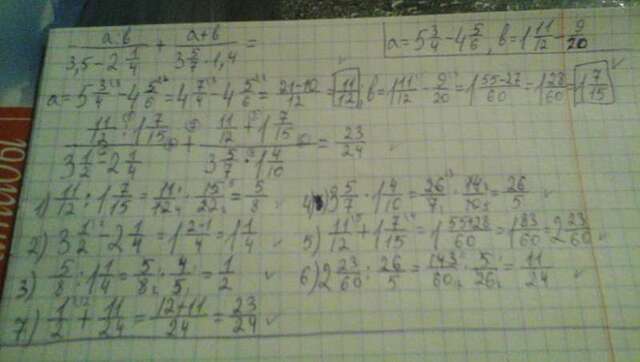 a:b/(3,5-2 1/4) + (a+b)/(3 5/7·1,4) =
a=5 3/4-4 5/6, b=1 11/12-9/20
a=5 3/4-4 5/6=4 7/4-4 5/6=(21-10)/12=11/12; b=1 11/12-9/20=1 (55-27)/60=1 28/60=1 7/15
(11/12:1 7/15)/(3 1/2-2 1/4)+(11/12+1 7/15)/(3 5/7·1 4/10)=23/24
1) 11/12:1 7/15=11/12·15/22=5/8
4) 3 5/7·1 4/10=26/7·14/10=26/5
2) 3 1/2-2 1/4=1 (2-1)/4=1 1/4
5) 11/12+1 7/15=1 (55+28)/60=1 83/60=2 23/60
3) 5/8:1 1/4=5/8·4/5=1/2
6) 2 23/60:26/5=143/60·5/26=11/24
7) 1/2+11/24=(12+11)/24=23/24